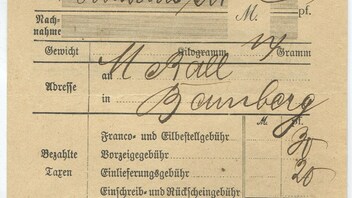 M. pf.
Nach-
nahme
Gewicht Kilogramm Gramm
Adresse an M Kall
in Bamberg
M. Pf.
Franco- und Eilbestellgebühr 30
Bezahlte Vorzeigegebühr
Taxen Einlieferungsgebühr 20
Einschreib- und Rückscheingebühr